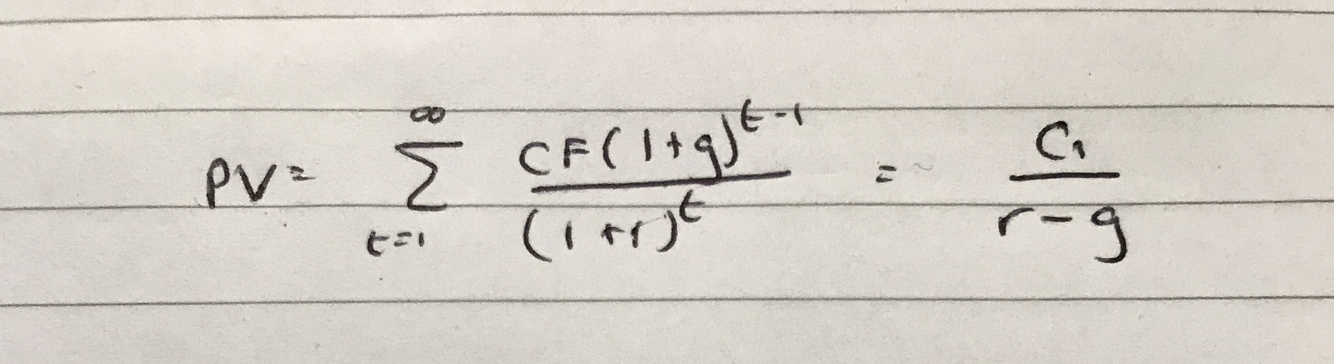 PV = \sum_{t=1}^{\infty} \frac{CF(1+g)^{t-1}}{(1+r)^{t}} = \frac{C_1}{r-g}